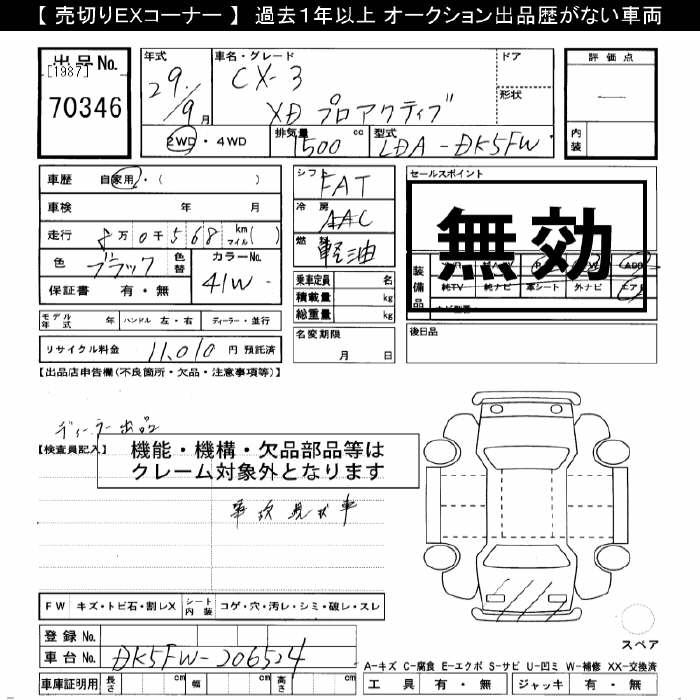 【 売切りEXコーナー 】 過去1年以上 オークション出品歴がない車両
出品No.
[1987]
70346
年式
29.
9月
車名・グレード
CX-3
XD プロアクティブ
ドア
形状
評価点
内装
2WD・4WD
排気量 1500 cc
型式 LDA-DK5FW
車歴 自家用・( )
車検 年 月
走行 8万0千568 km マイル( )
色 ブラック
色替
カラーNo. 41W
保証書 有・無
モデル年式 年 ハンドル 左・右 ディーラー・並行
リサイクル料金 11,010 円 預託済
シフト FAT
冷房 AAC
燃料 軽油
乗車定員 名
積載量 kg
総重量 kg
名変期限
月 日
セールスポイント
無効
装備品
純TV 純ナビ 革シート 外ナビ エアB
後日品
【出品店申告欄(不良箇所・欠品・注意事項等)】
ディーラー出品
【検査員記入】
機能・機構・欠品部品等は
クレーム対象外となります
事故現状車
FW キズ・トビ石・割レX
シート内装 コゲ・穴・汚レ・シミ・破レ・スレ
登録No.
車台No. DK5FW-206524
車庫証明用 長さ cm 幅 cm 高さ cm
スペア
A-キズ C-腐食 E-エクボ S-サビ U-凹ミ W-補修 XX-交換済
工具 有・無 ジャッキ 有・無